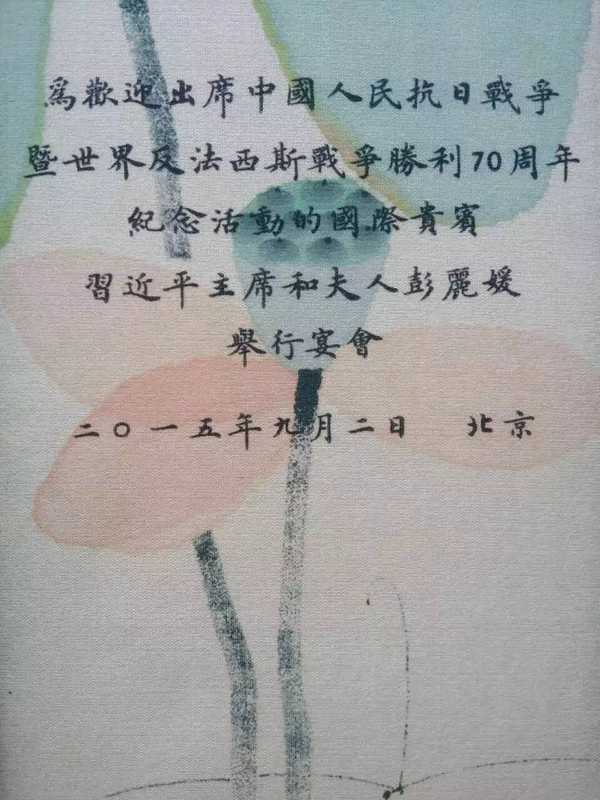 為歡迎出席中國人民抗日戰爭
暨世界反法西斯戰爭勝利70周年
紀念活動的國際貴賓
習近平主席和夫人彭麗媛
舉行宴會
二〇一五年九月二日 北京